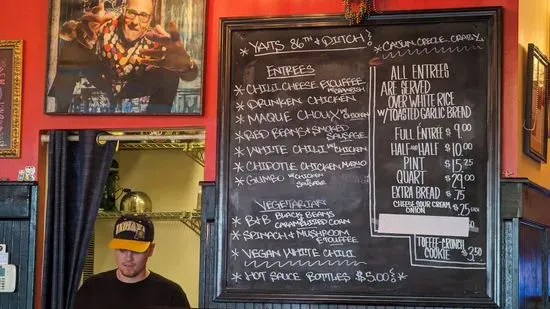 * YATS 86TH & DITCH *
ENTREES
* CHILI CHEESE ETOUFFEE W/ CRAWFISH
* DRUNKEN CHICKEN
* MAQUE CHOUX W/ CHICKEN
* RED BEANS & SMOKED SAUSAGE
* WHITE CHILI W/ CHICKEN
* CHIPOTLE CHICKEN
* GUMBO W/ CHICKEN SAUSAGE
VEGETARIAN
* B&B BLACK BEANS CARAMELIZED CORN
* SPINACH & MUSHROOM ETOUFFEE
* VEGAN WHITE CHILI
* HOT SAUCE BOTTLES $5.00 *
* CAJUN. CREOLE. CRAZY. *
ALL ENTREES
ARE SERVED
OVER WHITE RICE
W/ TOASTED GARLIC BREAD
FULL ENTREE $9.00
HALF AND HALF $10.00
PINT $15.25
QUART $29.00
EXTRA BREAD $.75
CHEESE · SOUR CREAM · ONION $.25 EACH
TOFFEE-CRUNCH COOKIE $3.50
INDIANA